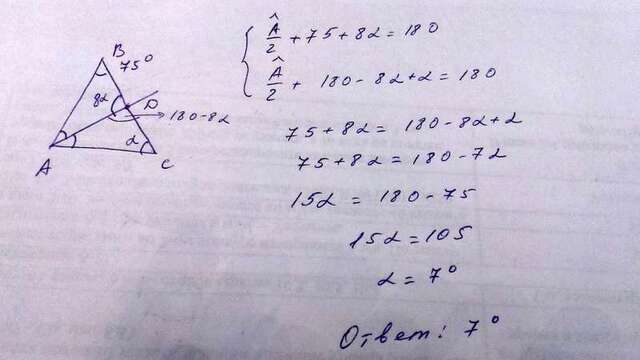 B
75°
8α
D
180-8α
A
α
C
Â/2 + 75 + 8α = 180
Â/2 + 180 - 8α + α = 180
75 + 8α = 180 - 8α + α
75 + 8α = 180 - 7α
15α = 180 - 75
15α = 105
α = 7°
Ответ: 7°